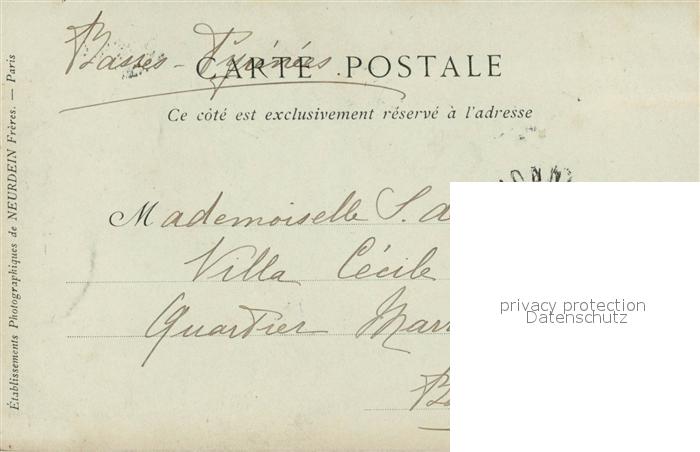 Basses-Pyrénées
CARTE POSTALE
Ce côté est exclusivement réservé à l'adresse
Mademoiselle S. d
Villa Cécile
Quartier Marr
B
Établissements Photographiques de NEURDEIN Frères. — Paris
privacy protection
Datenschutz